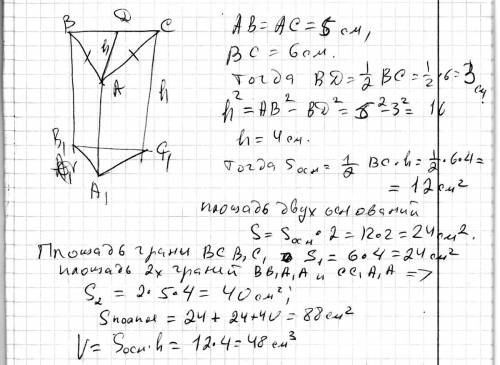 B D C
h
A
h
B₁ C₁
A₁
AB = AC = 5 см,
BC = 6 см.
тогда BD = 1/2 BC = 1/2 · 6 = 3 см
h² = AB² - BD² = 5² - 3² = 16
h = 4 см.
тогда Sосн = 1/2 BC · h = 1/2 · 6 · 4 =
= 12 см²
площадь двух оснований
S = Sосн · 2 = 12 · 2 = 24 см².
Площадь грани BCB₁C₁ S₁ = 6 · 4 = 24 см²
площадь 2х граней BB₁A₁A и CC₁A₁A =>
S₂ = 2 · 5 · 4 = 40 см²;
Sполное = 24 + 24 + 40 = 88 см²
V = Sосн · h = 12 · 4 = 48 см³